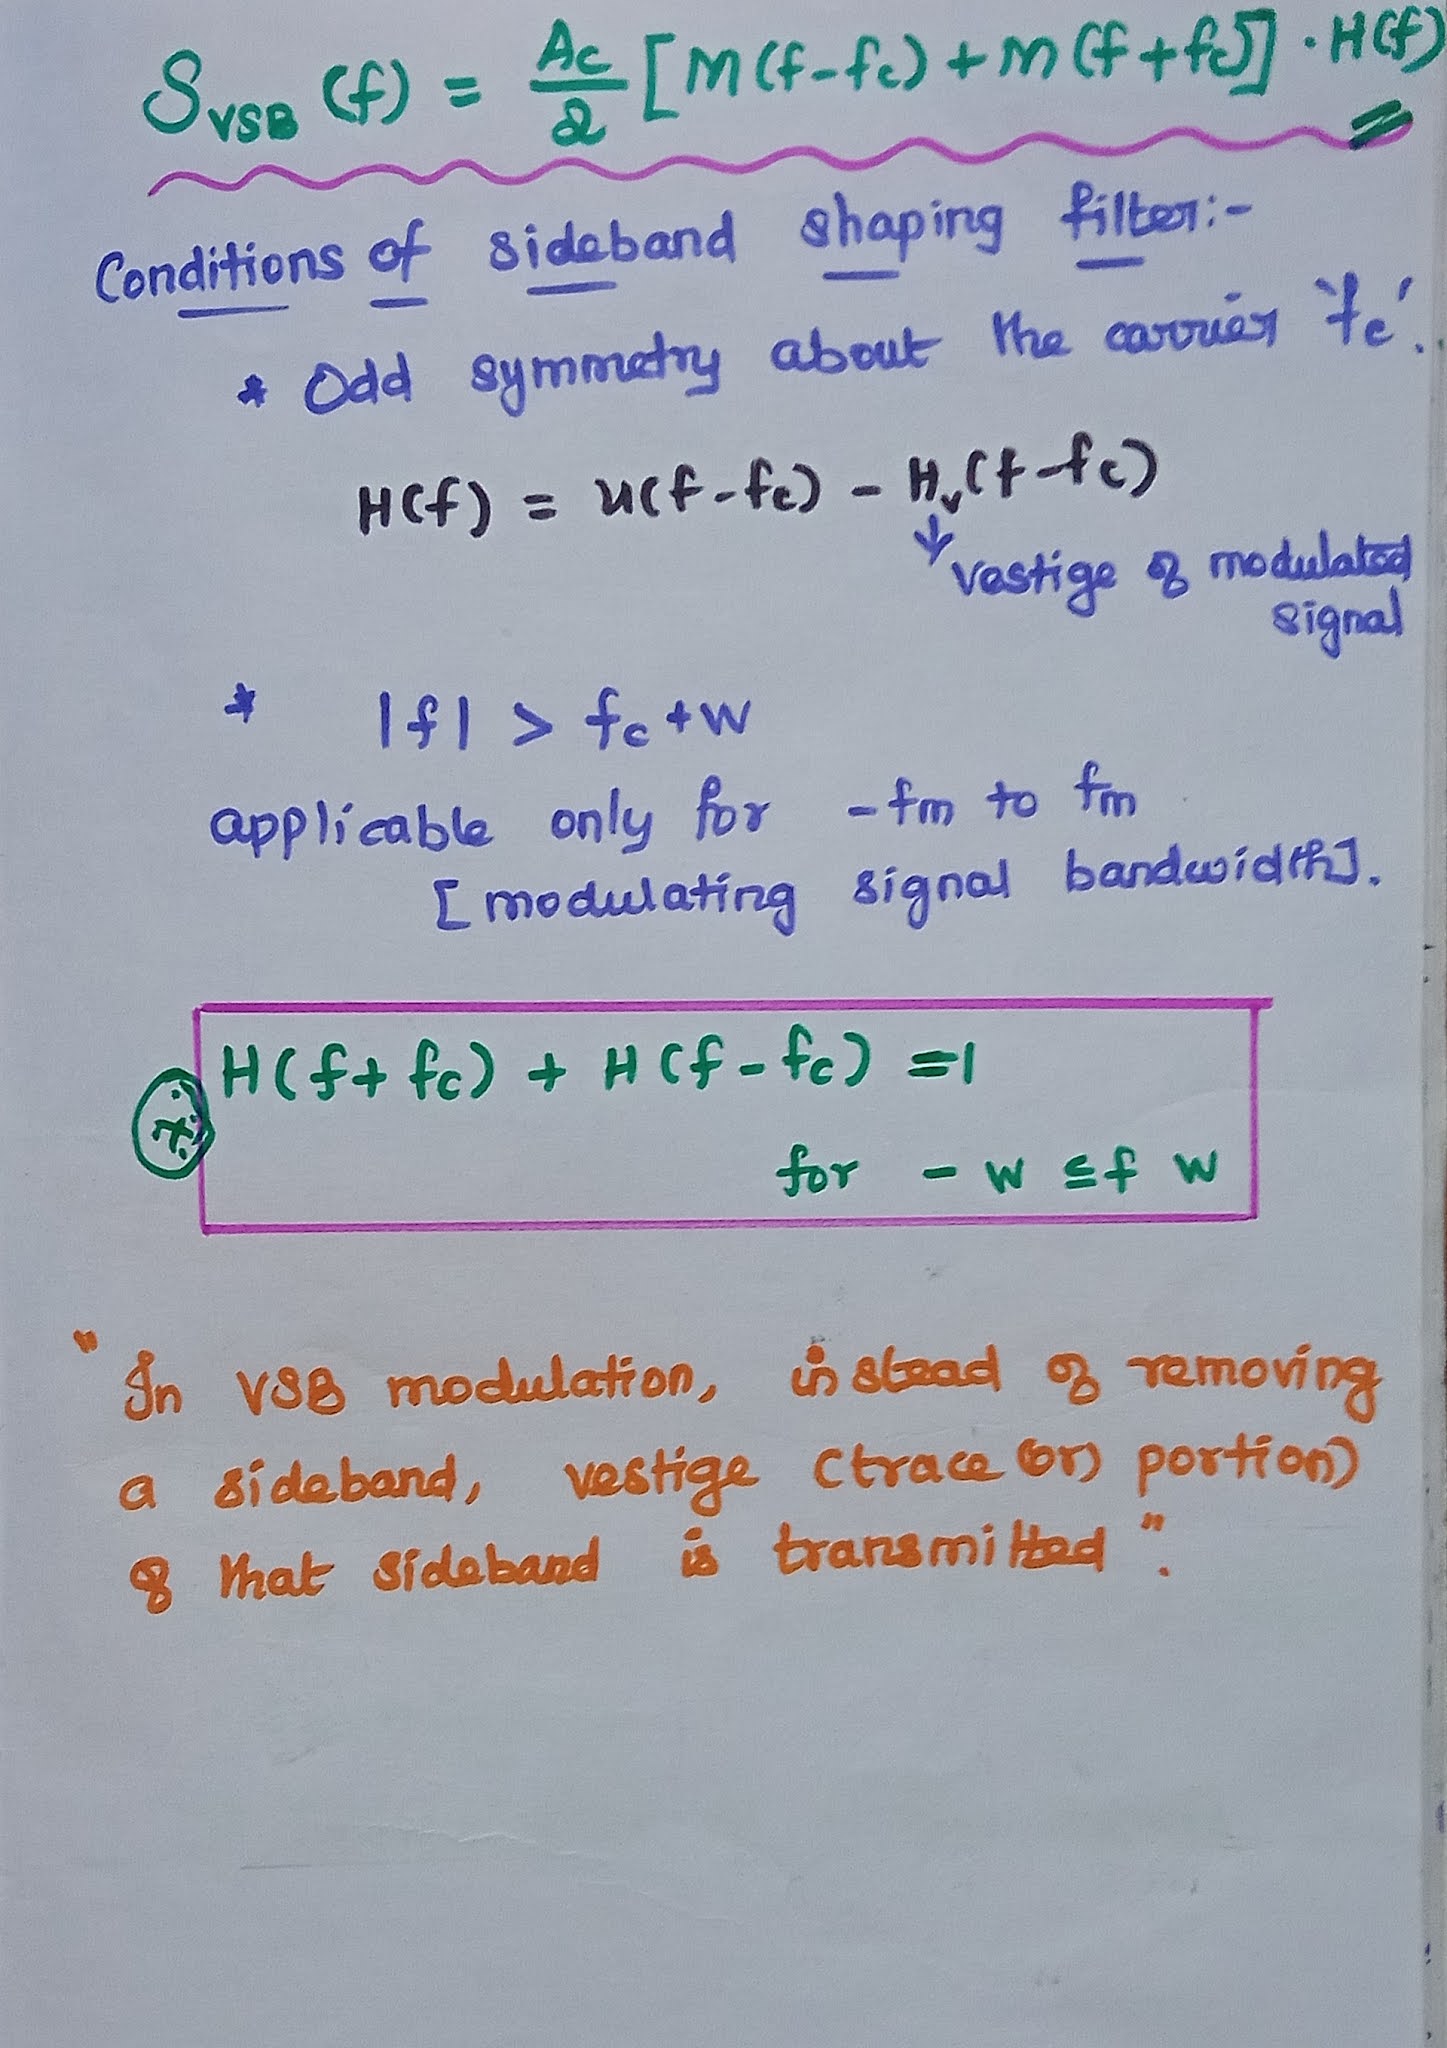 S_VSB (f) = Ac/2 [M(f-fc) + M(f+fc)] · H(f)
Conditions of sideband shaping filter:-
* Odd symmetry about the carrier 'fc'.
H(f) = u(f-fc) - Hv(f-fc)
↓ vestige of modulated
signal
* |f| > fc+W
applicable only for -fm to fm
[modulating signal bandwidth].
H(f+fc) + H(f-fc) =1
for -W ≤ f W
"In VSB modulation, instead of removing
a sideband, vestige (trace (or) portion)
of that sideband is transmitted".